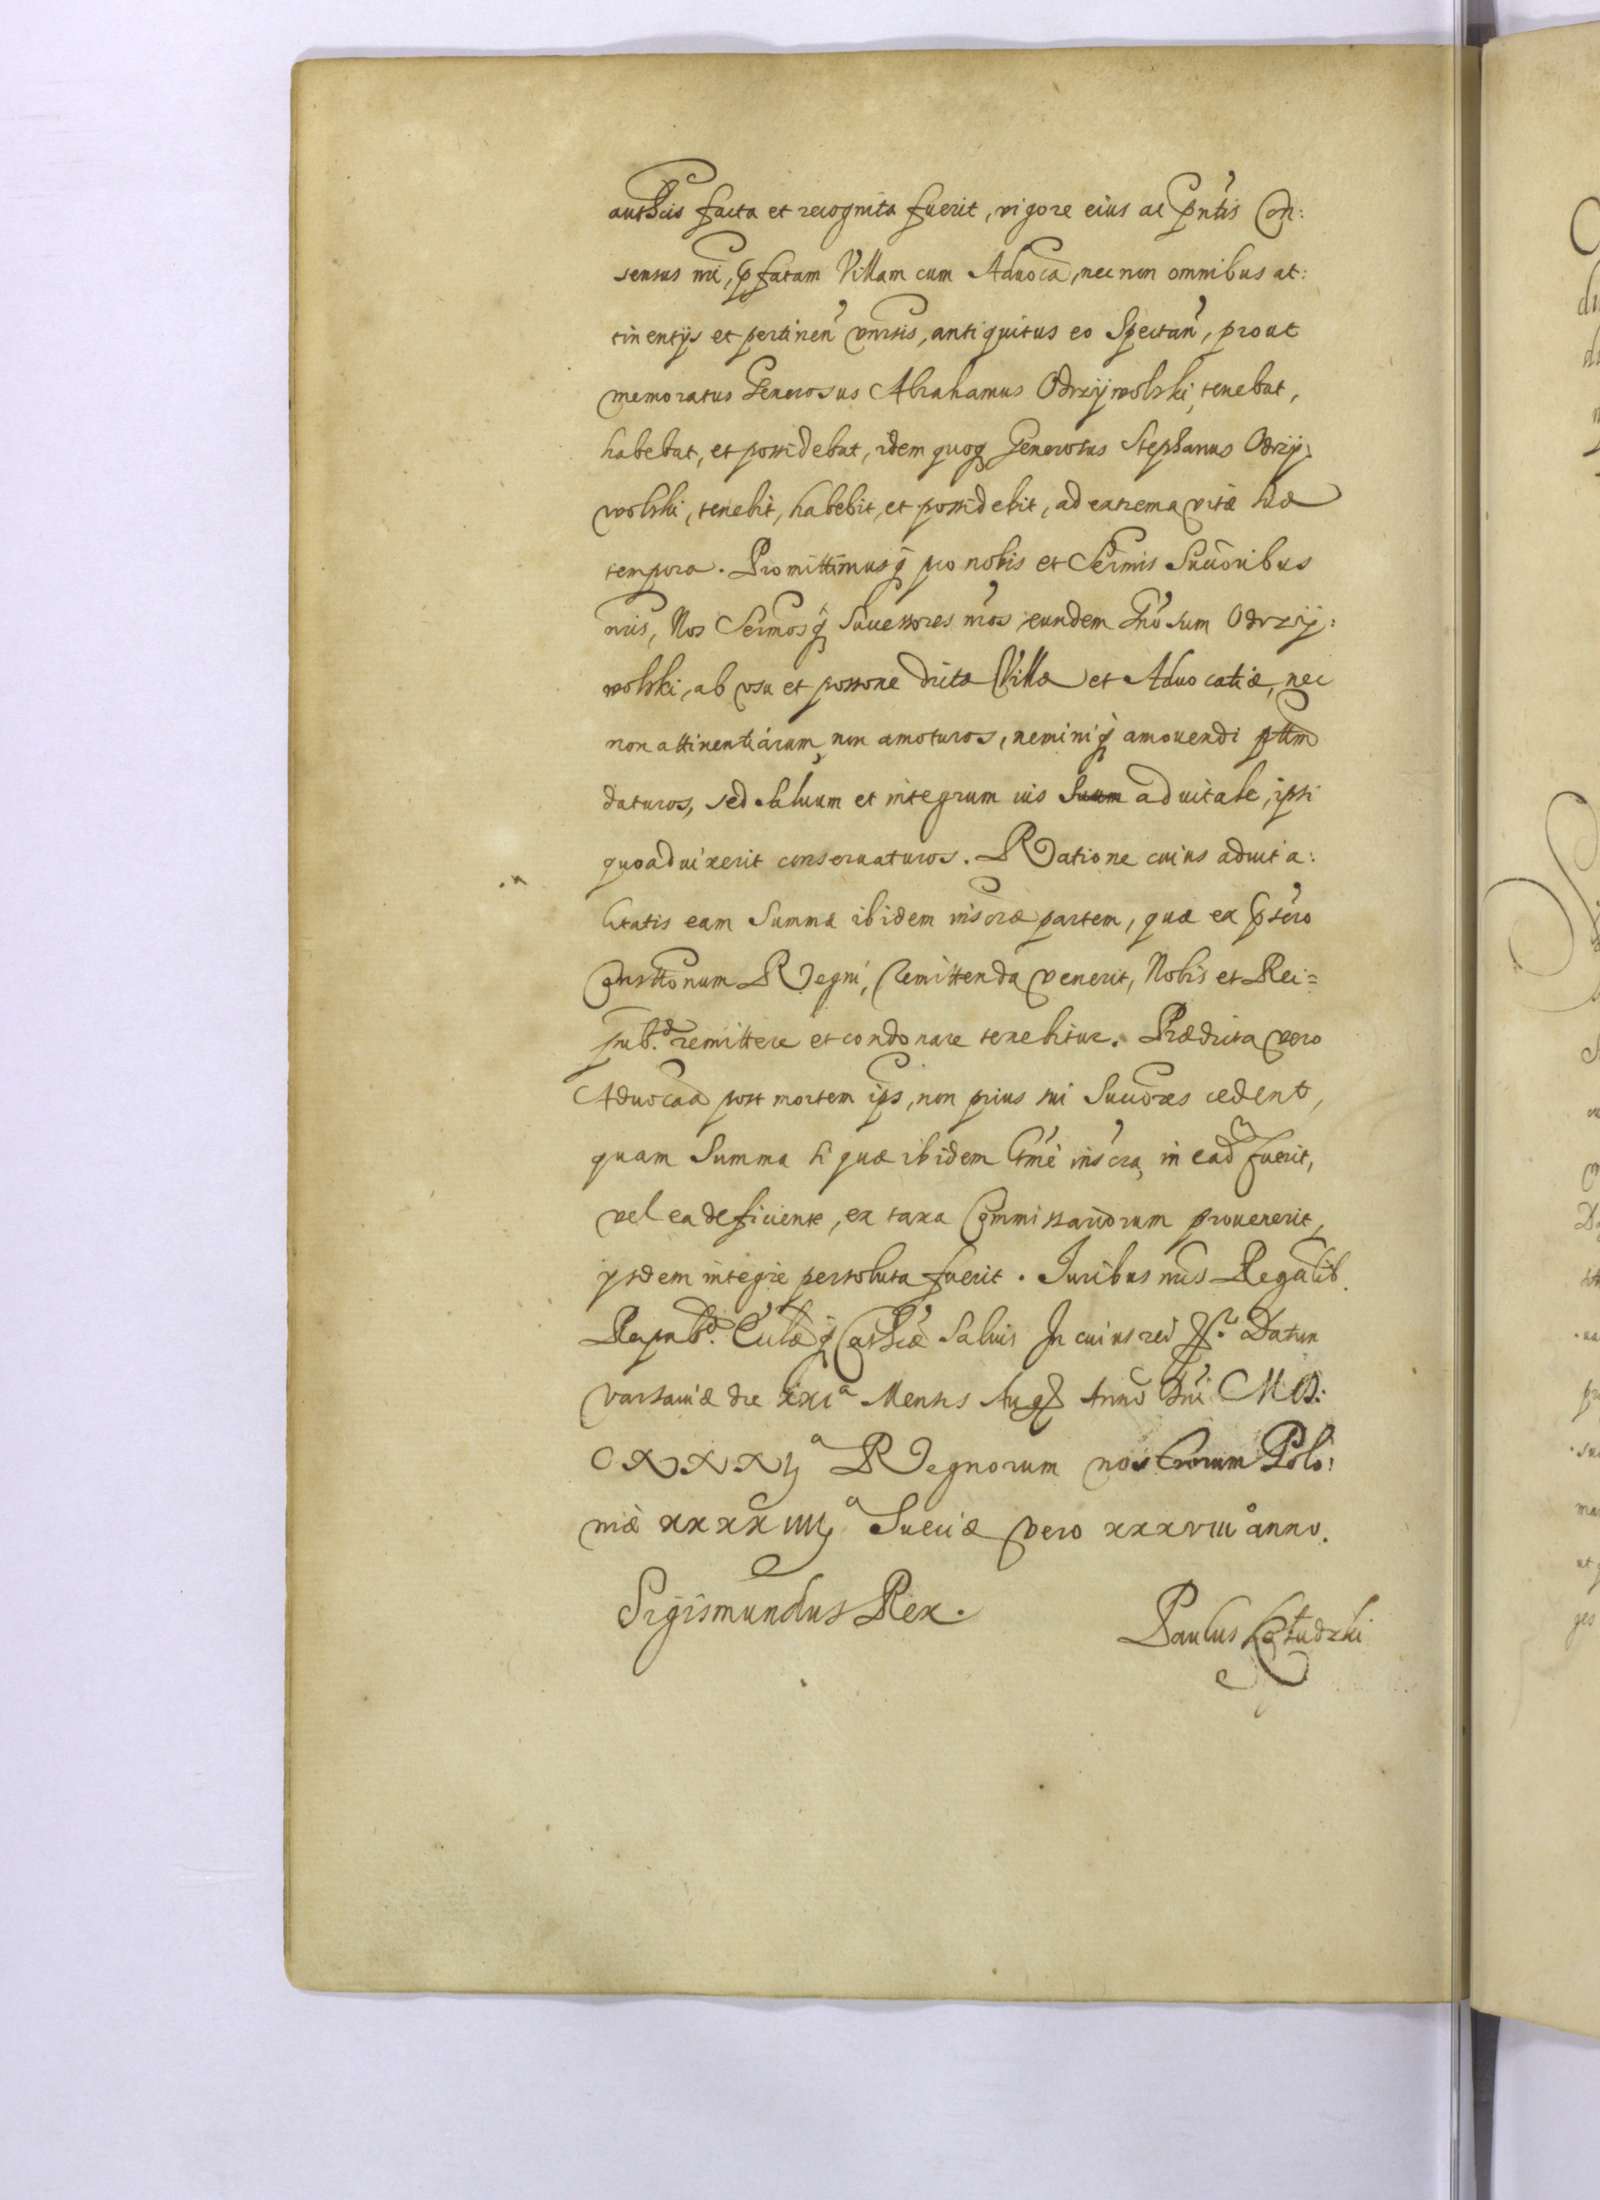 authcis facta et recognita fuerit, vigore eius ac pntis Con:
sensus nri, pfatam Villam cum Aduoca, nec non omnibus at:
tinentijs et pertinen vnirsis, antiquitus eo Spectan, prout
memoratus Generosus Abrahamus Odrzywolski, tenebat,
habebat, et possidebat, idem quoq Generosus Stephanus Odrzy:
wolski, tenebit, habebit, et possidebit, ad extrema vitæ suæ
tempora. Promittimusq pro nobis et Sermis Succoribus
nris, Nos Sermosq Successores nros eundem Gnosum Odrzy:
wolski, ab vsu et possone dictæ Villæ et Aduocatiæ, nec
non attinentiarum, non amoturos, neminiq amouendi pttm
daturos, sed saluum et integrum ius suum aduitale, ipsi
quoad uixerit conseruaturos. Ratione cuius aduita:
litatis eam Summæ ibidem inscræ partem, quæ ex pscro
Consttonum Regni, remittenda venerit, Nobis et Rei=
pub. remittere et condonare tenebitur. Prædicta vero
Aduocaa post mortem ips, non prius sui Succores cedent,
quam Summa si quæ ibidem ltme inscra, in ead fuerit,
vel ea deficiente, ex taxa Commissariorum prouenerit,
ysdem integre persoluta fuerit. Iuribus nris Regalib.
Reipub. Cclæq Cathcæ saluis In cuius rei Datum
Varsauiæ die XXIa Mensis Aug Anno Dni MD:
CXXXIIa Regnorum nostrorum Polo:
niæ XXXXIIIIa Sueciæ vero XXXVIIIo anno.
Sigismundus Rex.
Paulus Kołudzki